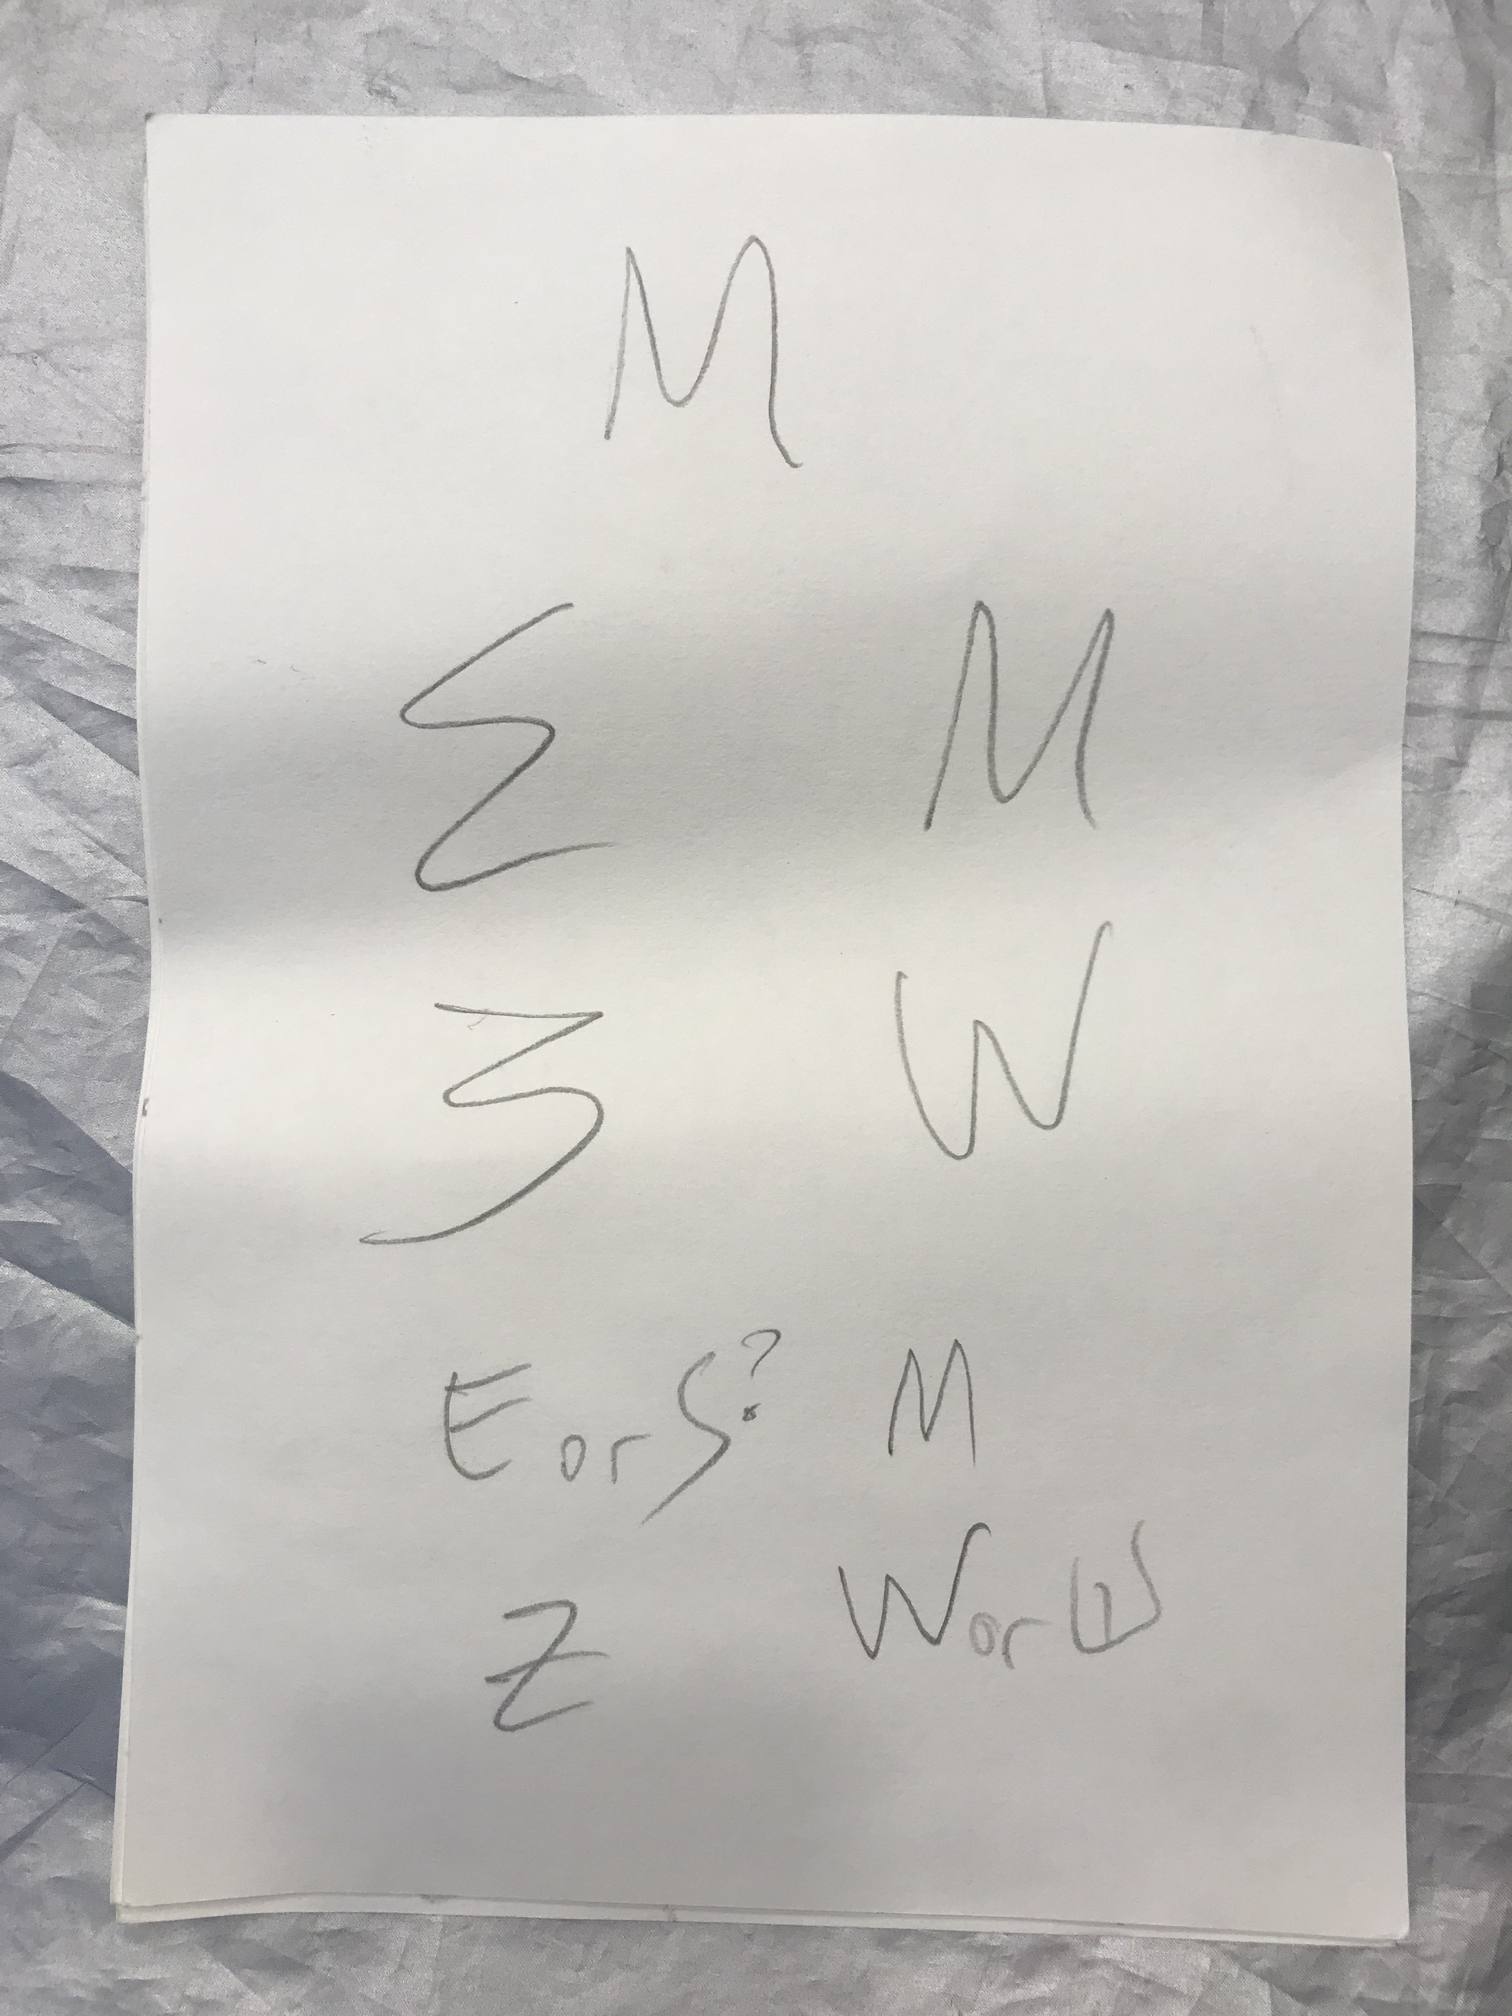 M
Σ M
3 W
E or S? M
Z W or